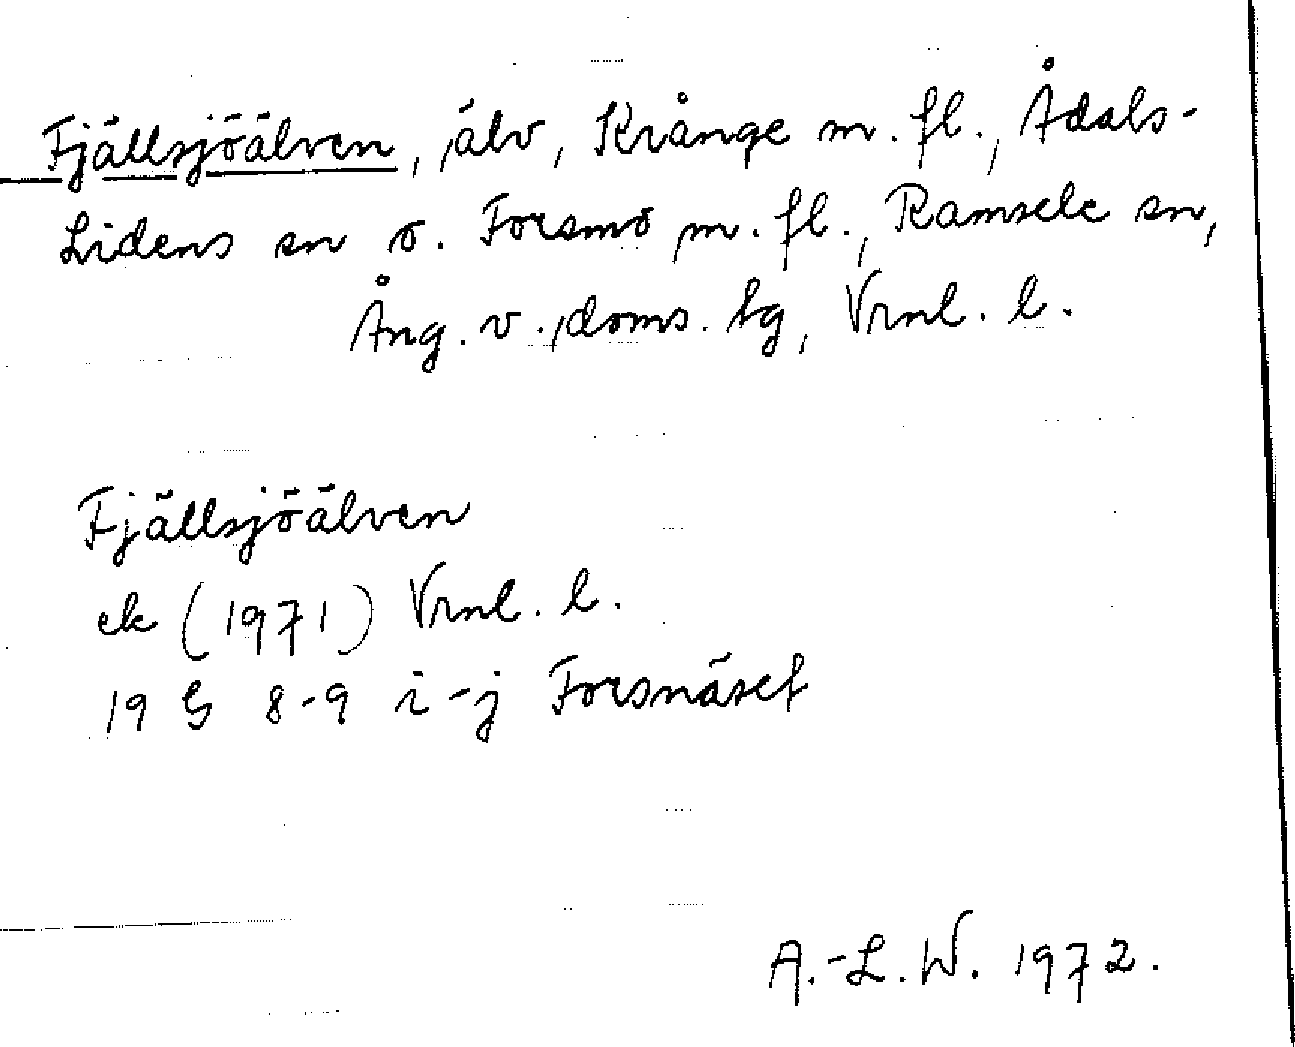 Fjällsjöälven, älv, Krånge m. fl., Ådals-
Lidens sn o. Forsmo m. fl., Ramsele sn,
Ång. v. doms. tg, Vrnl. l.
Fjällsjöälven
ek (1971) Vrnl. l.
19 G 8-9 i-j Forsnäset
A.-L. W. 1972.